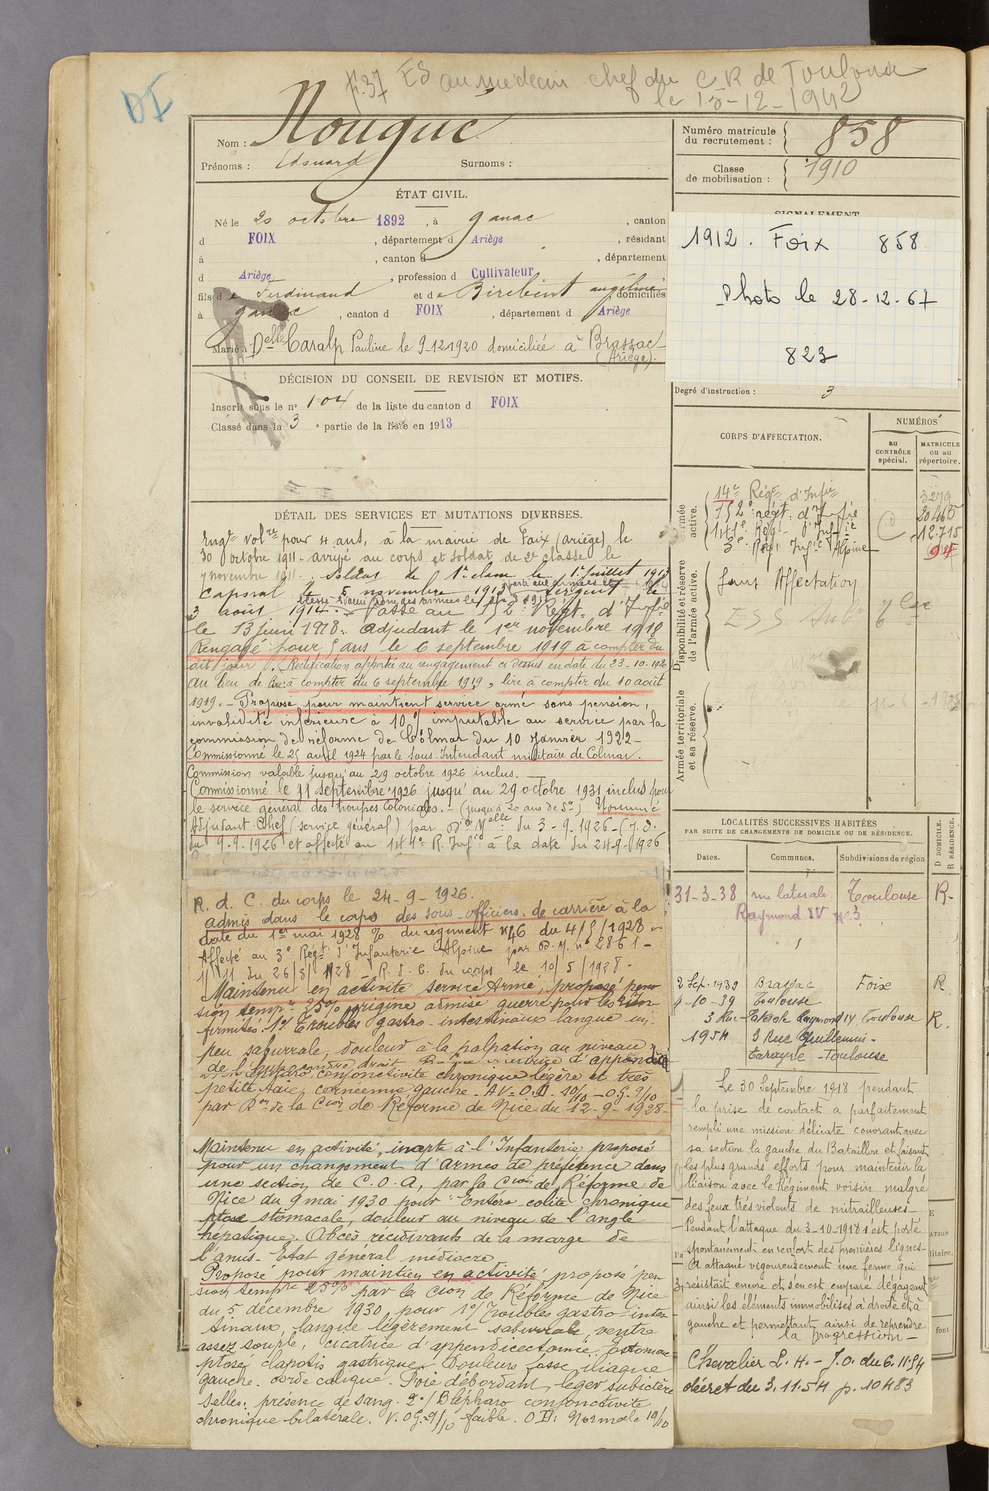 DI
F.37 ES au médecin chef du C R de Toulouse
le 15-12-1942
Nom : Nougué
Prénoms : Edouard Surnoms :
ÉTAT CIVIL.
Né le 20 octobre 1892, à ganac, canton
d FOIX, département d Ariège, résidant
à , canton d , département
d Ariège, profession d Cultivateur
fils de Ferdinand et de Birebent angéline domiciliés
à ganac, canton d FOIX, département d Ariège
Marié à Delle Caralp Pauline le 9-12-1920 domiciliée à Brassac
(Ariège).
DÉCISION DU CONSEIL DE REVISION ET MOTIFS.
Inscrit sous le n° 104 de la liste du canton d FOIX
Classé dans la 3 e partie de la liste en 1913
DÉTAIL DES SERVICES ET MUTATIONS DIVERSES.
Engé volre pour 4 ans, à la mairie de Foix (ariège) le
30 octobre 1911. arrivé au corps et soldat de 2e classe le
7 novembre 1911. Soldat de 1e classe le 1er juillet 1913
Caporal le 5 novembre 1913 Sergent le
3 août 1914. Passé au Régt. d'Infie
le 13 juin 1918. Adjudant le 1er novembre 1918
Rengagé pour 5 ans le 6 septembre 1919 à compter du
dit jour. Rectification apportée au rengagement ci dessus en date du 23-10-1920
au lieu de lire: à compter du 6 septembre 1919, lire à compter du 10 août
1919. - Proposé pour maintient service armé sans pension,
invalidité inférieure à 10 % imputable au service par la
commission de réforme de Colmar du 10 Janvier 1922-
Commissionné le 25 avril 1924 par le Sous Intendant militaire de Colmar.
Commission valable jusqu'au 29 octobre 1926 inclus.
Commissionné le 11 septembre 1926 jusqu'au 29 octobre 1931 inclus pour
le service général des troupes Coloniales. - (jusqu'à 20 ans de Sce) Nommé
Adjudant Chef (service général) par du 3-9-1926 - (J.O.
du 9-9-1926 et affecté au 141e R. Infie à la date du 24-9-1926
R. d. C. du corps le 24-9-1926.
admis dans le corps des sous-officiers de carrière à la
date du 1er mai 1928 % du régiment N°46 du 4/5/1928
Affecté au 3e Régt d'Infanterie Alpine par D.M. n° 2861-
1/11 du 26/3/1928 - R. d. C. du corps le 10/5/1928.
Maintenu en activité Service Armé, proposé pen
sion tempre 25% origine admise guerre pour les in
firmités: 1°/ Troubles gastro-intestinaux langue un
peu saburrale, douleur à la palpation au niveau
de l'hypocondre droit cicatrice d'appendicite
conjonctivite chronique légère et très
petite taie cornéenne gauche - AV = O.D. 10/10 - O.G. 9/10
par Don de la Cion de Réforme de Nice du 12-9-1928-
Maintenu en activité, inapte à l'Infanterie proposé
pour un changement d'armes de préférence dans
une section de C.O.A, par la Cion de Réforme de
Nice du 9 mai 1930 pour: Entéro colite chronique
ptose stomacale, douleur au niveau de l'angle
hépatique. Abcès récidivants de la marge de
l'anus. Etat général médiocre
Proposé pour maintien en activité proposé pen
sion tempre 25% par la Cion de Réforme de Nice
du 5 décembre 1930, pour 1°/ Troubles gastro-intes
tinaux, langue légèrement saburrale, ventre
assez souple, cicatrice d'appendicectomie. Estomac
ptosé clapotis gastrique. Douleurs fosse iliaque
gauche. Corde colique. Foie débordant, léger subictère
Selles: présence de sang. 2°/ Blépharo conjonctivite
chronique bilatérale. V. OG. 9/10 faible. O D: Normale 10/10
Numéro matricule
du recrutement : 858
Classe
de mobilisation : 1910
SIGNALEMENT
1912. Foix 858
Photo le 28-12-67
823
Degré d'instruction : 3
CORPS D'AFFECTATION.
NUMÉROS
AU CONTRÔLE spécial.
MATRICULE ou au répertoire.
Armée active.
14e Régt d'Infie 3279
régt. d'Infie 20460
141e Régt d'Infie 12.715
3e Régt Infie Alpine
Disponibilité et réserve de l'armée active.
Sans Affectation
Armée territoriale et sa réserve.
LOCALITÉS SUCCESSIVES HABITÉES
PAR SUITE DE CHANGEMENTS DE DOMICILE OU DE RÉSIDENCE.
Dates. Communes. Subdivisions de région D DOMICILE. R RÉSIDENCE.
31-3-38 rue laterale Toulouse R.
Raymond IV n° 3.
2 Sept. 1939 Brassac Foix R
4-10-39 Toulouse
3 Rue Raymond IV Toulouse R.
1954 3 Rue Guillemin-
Tarayre - Toulouse
Le 30 Septembre 1918 pendant
la prise de contact a parfaitement
rempli une mission délicate couvrant avec
sa section la gauche du Bataillon et faisant
les plus grands efforts pour maintenir la
liaison avec le Régiment voisin malgré
des feux très violents de mitrailleuses-
Pendant l'attaque du 3-10-1918 s'est porté
spontanément en renforts des premières lignes-
A attaqué vigoureusement une ferme qui
résistait encore et s'en est emparé dégageant
ainsi les éléments immobilisés à droite et à
gauche et permettant ainsi de reprendre
la progression-
Chevalier L.H. - J.O. du 6.11.54
décret du 3.11.54 p. 10483